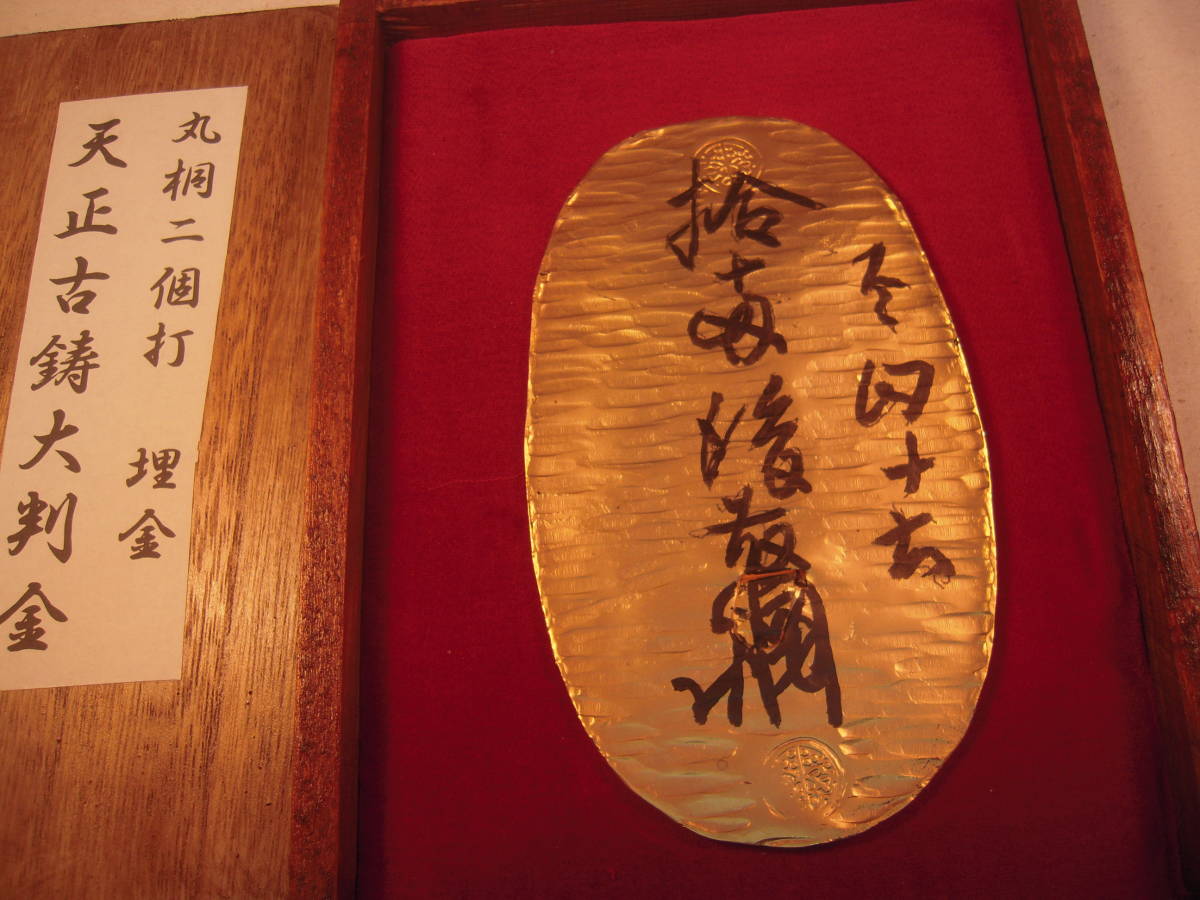 丸桐二個打 埋金
天正古鋳大判金
拾両後藤